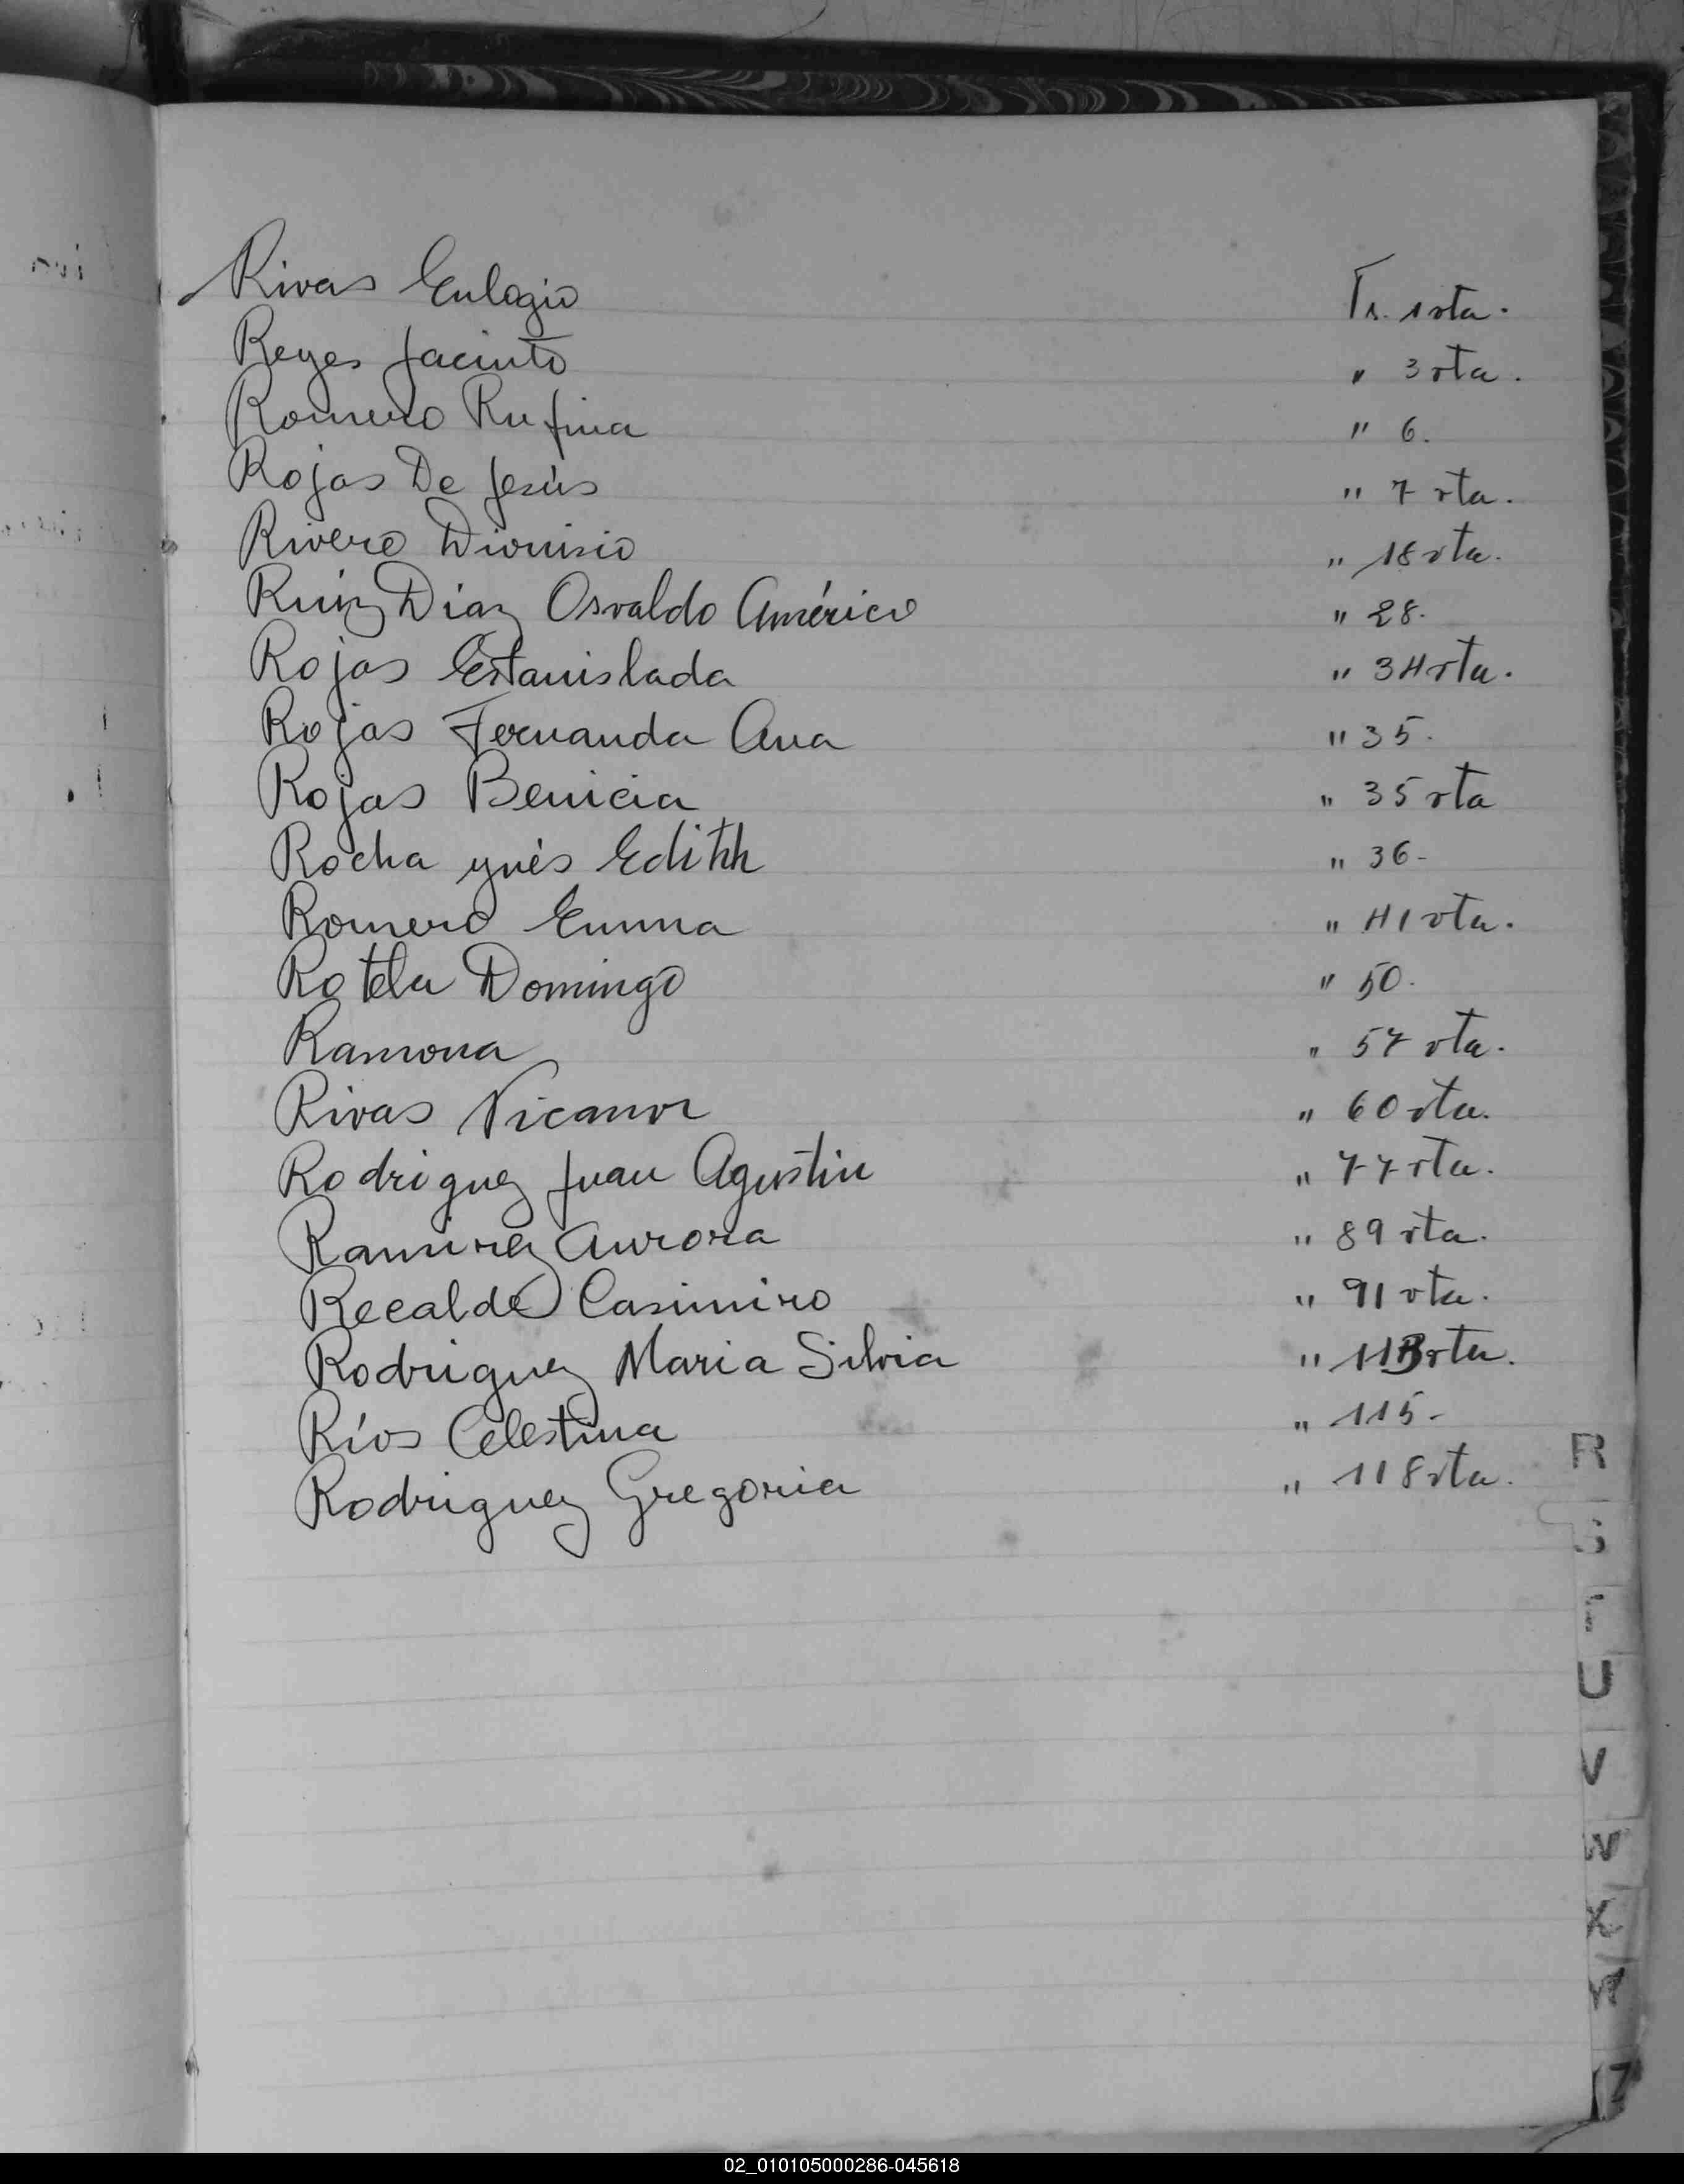 Rivas Eulogio Fs. 1 vta.
Reyes Jacinto " 3 vta.
Romero Rufina " 6.
Rojas De Jesús " 7 vta.
Rivero Dionisio " 18 vta.
Ruiz Díaz Osvaldo Américo " 28.
Rojas Estanislada " 34 vta.
Rojas Fernanda Ana " 35.
Rojas Benicia " 35 vta
Rocha ynés Edithh " 36-
Romero Emma " 41 vta.
Rotela Domingo " 50.
Ramona " 57 vta.
Rivas Nicanor " 60 vta.
Rodriguez Juan Agustin " 77 vta.
Ramirez Aurora " 89 vta.
Recalde Casimiro " 91 vta.
Rodriguez Maria Silvia " 113 vta.
Ríos Celestina " 115-
Rodriguez Gregoria " 118 vta.
R
S
T
U
V
W
X
Y
Z
02_010105000286-045618